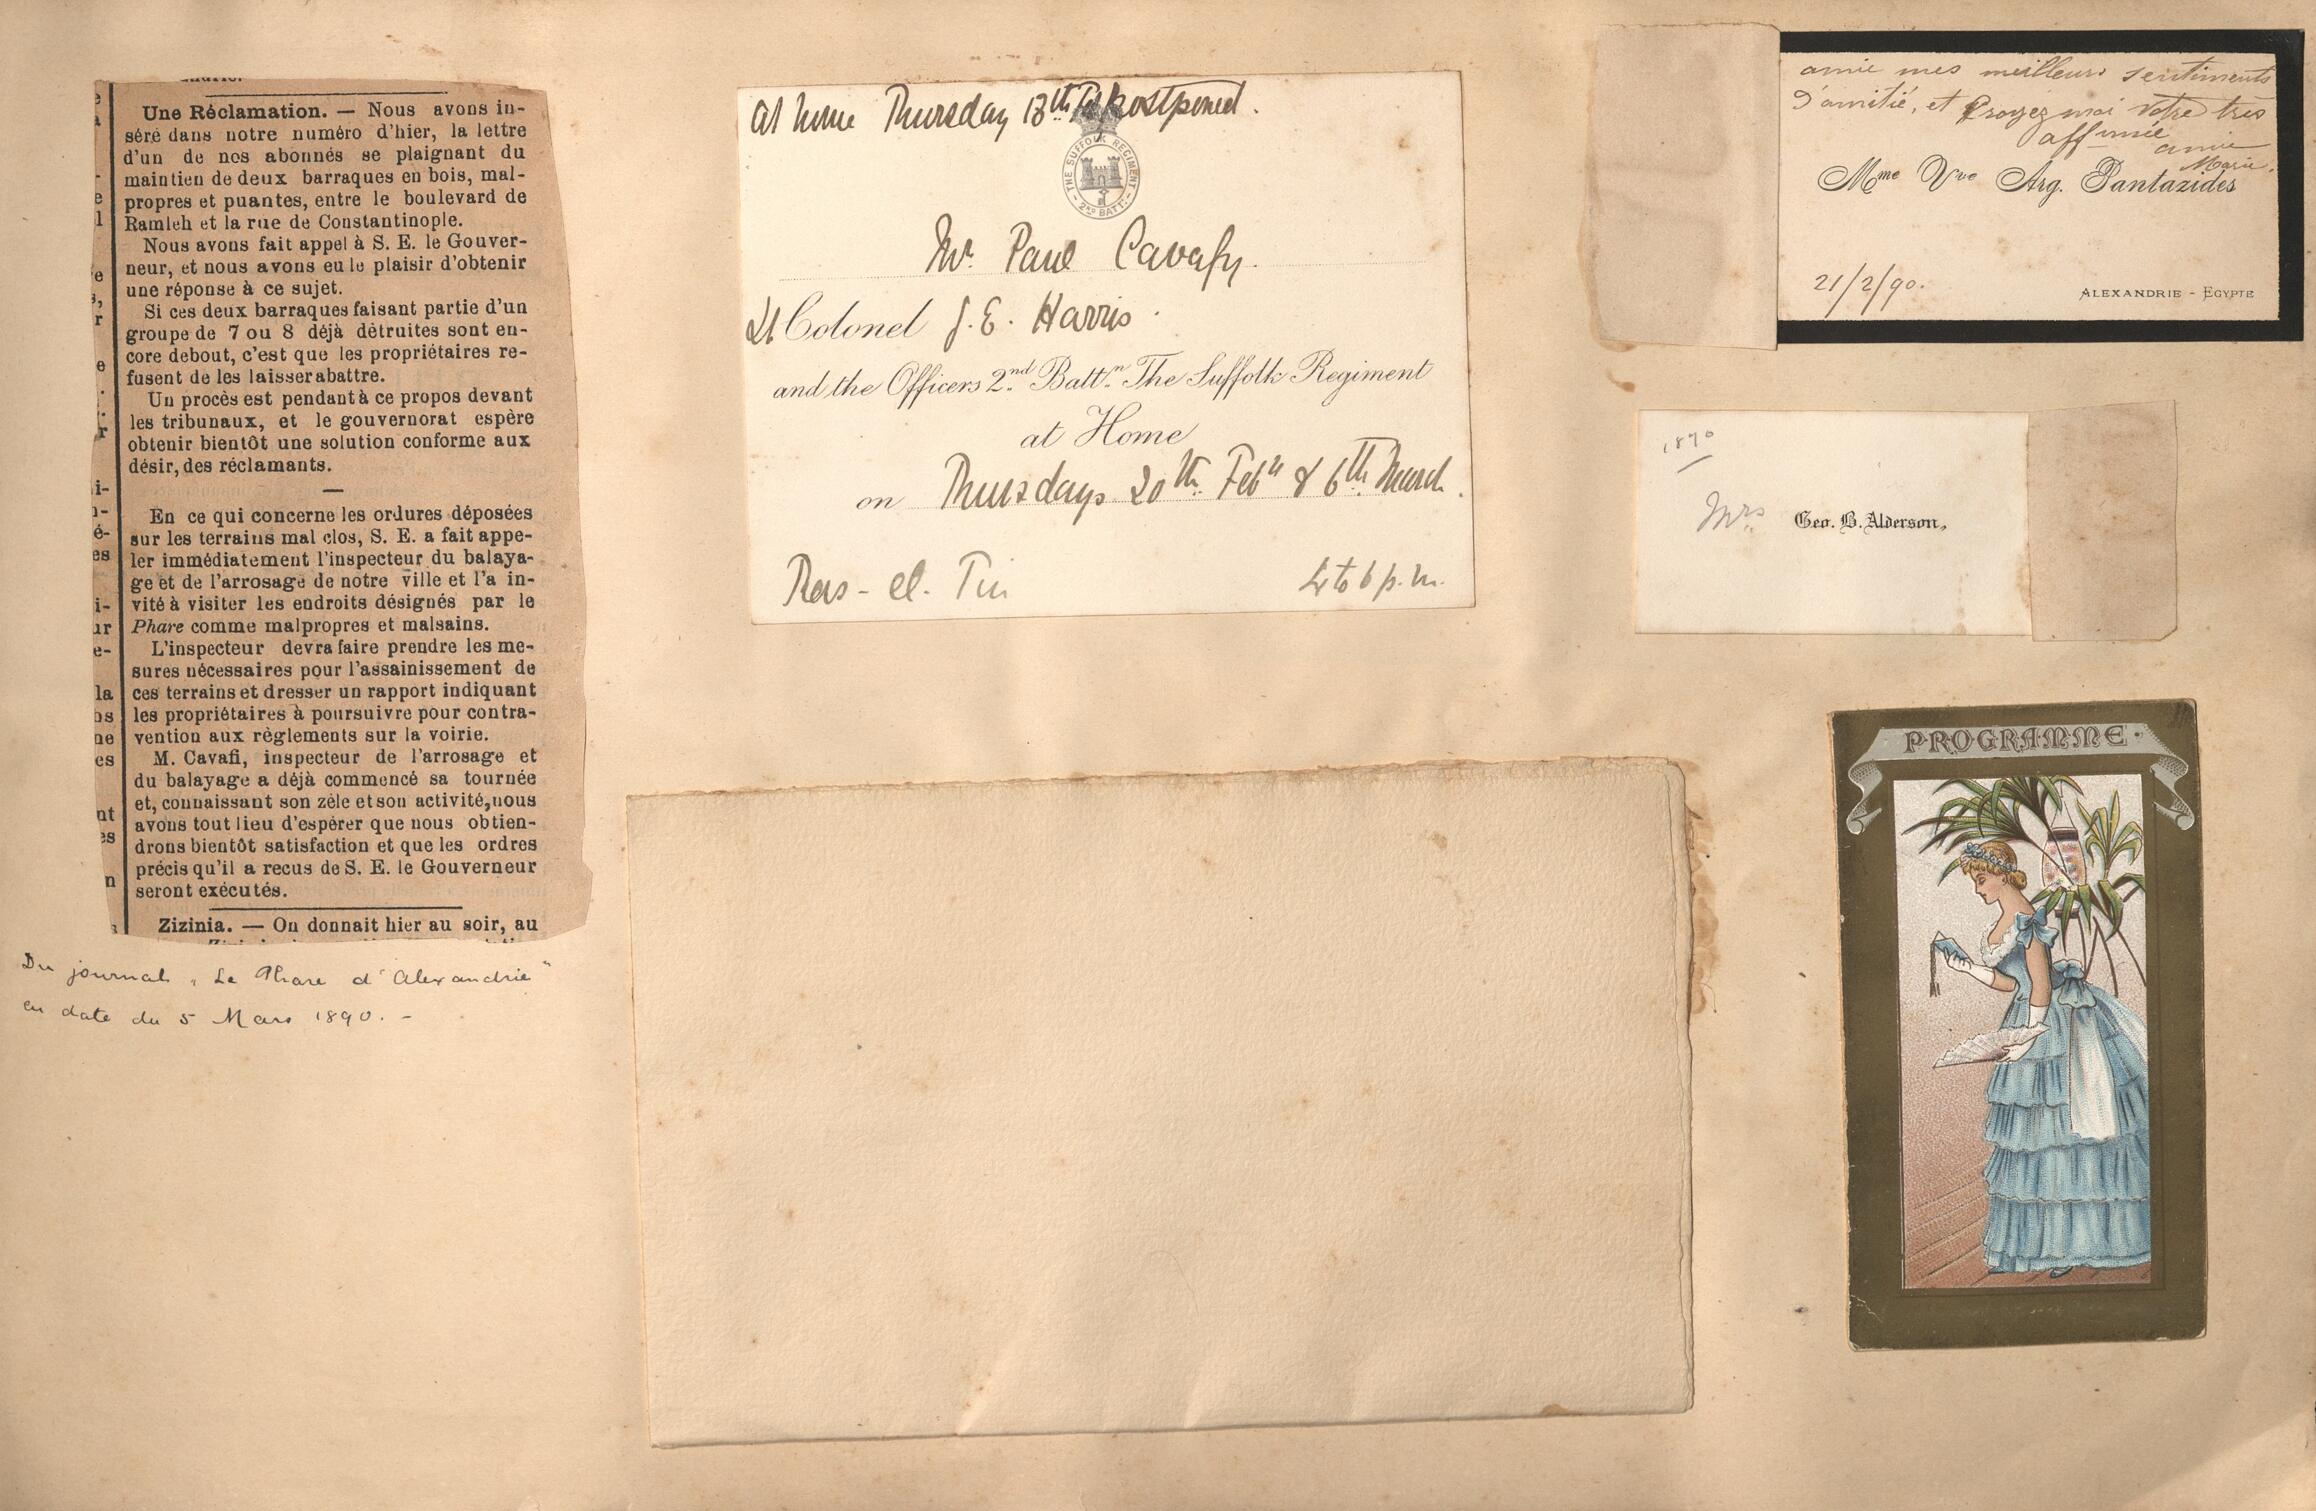 Une Réclamation. — Nous avons in-
séré dans notre numéro d'hier, la lettre
d'un de nos abonnés se plaignant du
maintien de deux barraques en bois, mal-
propres et puantes, entre le boulevard de
Ramleh et la rue de Constantinople.
Nous avons fait appel à S. E. le Gouver-
neur, et nous avons eu le plaisir d'obtenir
une réponse à ce sujet.
Si ces deux barraques faisant partie d'un
groupe de 7 ou 8 déjà détruites sont en-
core debout, c'est que les propriétaires re-
fusent de les laisser abattre.
Un procès est pendant à ce propos devant
les tribunaux, et le gouvernorat espère
obtenir bientôt une solution conforme aux
désir, des réclamants.
—
En ce qui concerne les ordures déposées
sur les terrains mal clos, S. E. a fait appe-
ler immédiatement l'inspecteur du balaya-
ge et de l'arrosage de notre ville et l'a in-
vité à visiter les endroits désignés par le
Phare comme malpropres et malsains.
L'inspecteur devra faire prendre les me-
sures nécessaires pour l'assainissement de
ces terrains et dresser un rapport indiquant
les propriétaires à poursuivre pour contra-
vention aux règlements sur la voirie.
M. Cavafi, inspecteur de l'arrosage et
du balayage a déjà commencé sa tournée
et, connaissant son zèle et son activité, nous
avons tout lieu d'espérer que nous obtien-
drons bientôt satisfaction et que les ordres
précis qu'il a recus de S. E. le Gouverneur
seront exécutés.
Zizinia. — On donnait hier au soir, au
Du journal "Le Phare d'Alexandrie"
en date du 5 Mars 1890. -
At home Thursday 13th Postponed.
THE SUFFOLK REGIMENT
2ND BATT.
Mr. Paul Cavafy.
Lt Colonel J. E. Harris.
and the Officers 2nd Battn. The Suffolk Regiment
at Home
on Thursdays 20th Feby & 6th March.
Ras-el-Tin 4 to 6 p.m.
amie mes meilleurs sentiments
d'amitié, et croyez moi votre très
affmée amie
Marie.
Mme Vve Arg. Pantazides
21/2/90.
ALEXANDRIE - EGYPTE
1890
Mrs Geo. B. Alderson,
PROGRAMME